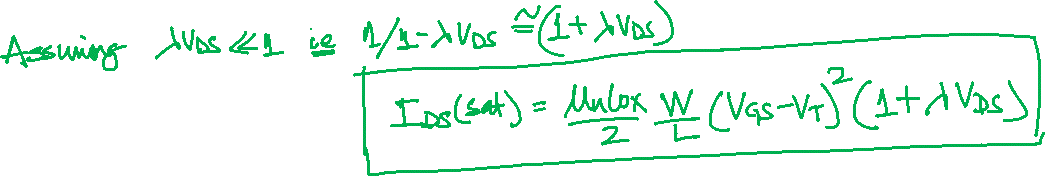 Assuming λVDS ≪ 1 ie 1/1-λVDS ≅ (1 + λVDS)
IDS(sat) = μnCox/2 W/L (VGS-VT)² (1 + λVDS)